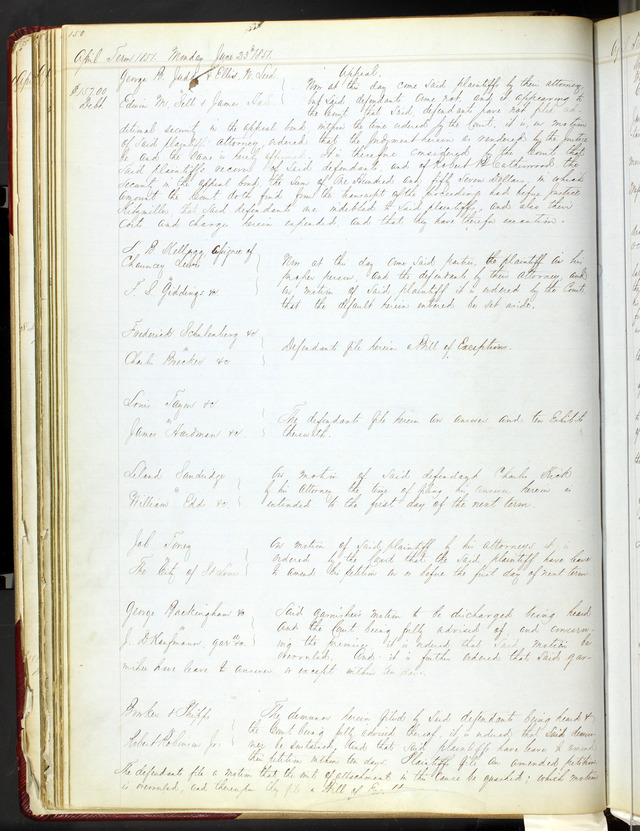 150
April Term 1851. Monday June 23d 1851.
George R. Judd & Ellis N. Leed
Edwin M. Tell & James
$157.00
Debt
Appeal.
Now at this day come said plaintiffs by their attorney
but said defendants come not, and it appearing to
the Court that said defendants have not filed
ditional security in the appeal bond within the time ordered by the Court, it is, on motion
of said plaintiffs attorney, ordered that the judgment herein rendered by the justice
be and the same is hereby affirmed. It is therefore considered by the Court that
said plaintiffs recover of said defendants and of Robert H. Catherwood the
security in the appeal bond, the sum of One Hundred and fifty Seven Dollars, in which
amount the Court doth find from the transcript of the proceedings had before Justice
that said defendants are indebted to said plaintiffs, and also their
costs and charges herein expended, and that they have therefor execution.
S. B. Kellogg assignee of
Chauncey Lewis
vs
T. S. Giddings &c
Now at this day come said parties, the plaintiff in his
proper person, and the defendants by their attorney, and
on motion of said plaintiff it is ordered by the Court
that the default herein entered be set aside.
Frederick Schulenberg &c
vs
Charles Brecker &c
Defendants file herein a Bill of Exceptions.
Louis Tayon &c
vs
James Hardman &c
The defendants file herein an answer and ten Exhibits
therewith.
Leland Sandridge
vs
William Edd &c.
On motion of said defendant Charles Keick
by his attorney the time of filing his answer herein is
extended to the first day of the next term.
Job Toney
vs
The City of St Louis
On motion of said plaintiff by his attorneys it is
ordered by the Court that the said plaintiff have leave
to amend the petition on or before the first day of next term
George Buckingham &c
vs
J. D. Kaufmann, gar. &c.
Said garnishees motion to be discharged being heard
and the Court being fully advised of and concern-
ing the premises it is ordered that said motion be
overruled. And it is further ordered that said gar-
nishee have leave to answer or except within ten days.
Bowker & Phipps
vs
Robert Robinson Jr.
The demurrer herein filed by said defendant being heard &
the Court being fully advised thereof, it is ordered that said demur-
rer be sustained, and that said plaintiffs have leave to amend
their petition within ten days. Plaintiffs file an amended petition
The defendants file a motion that the writ of attachment in this cause be quashed; which motion
is overruled, and thereupon they file a Bill of